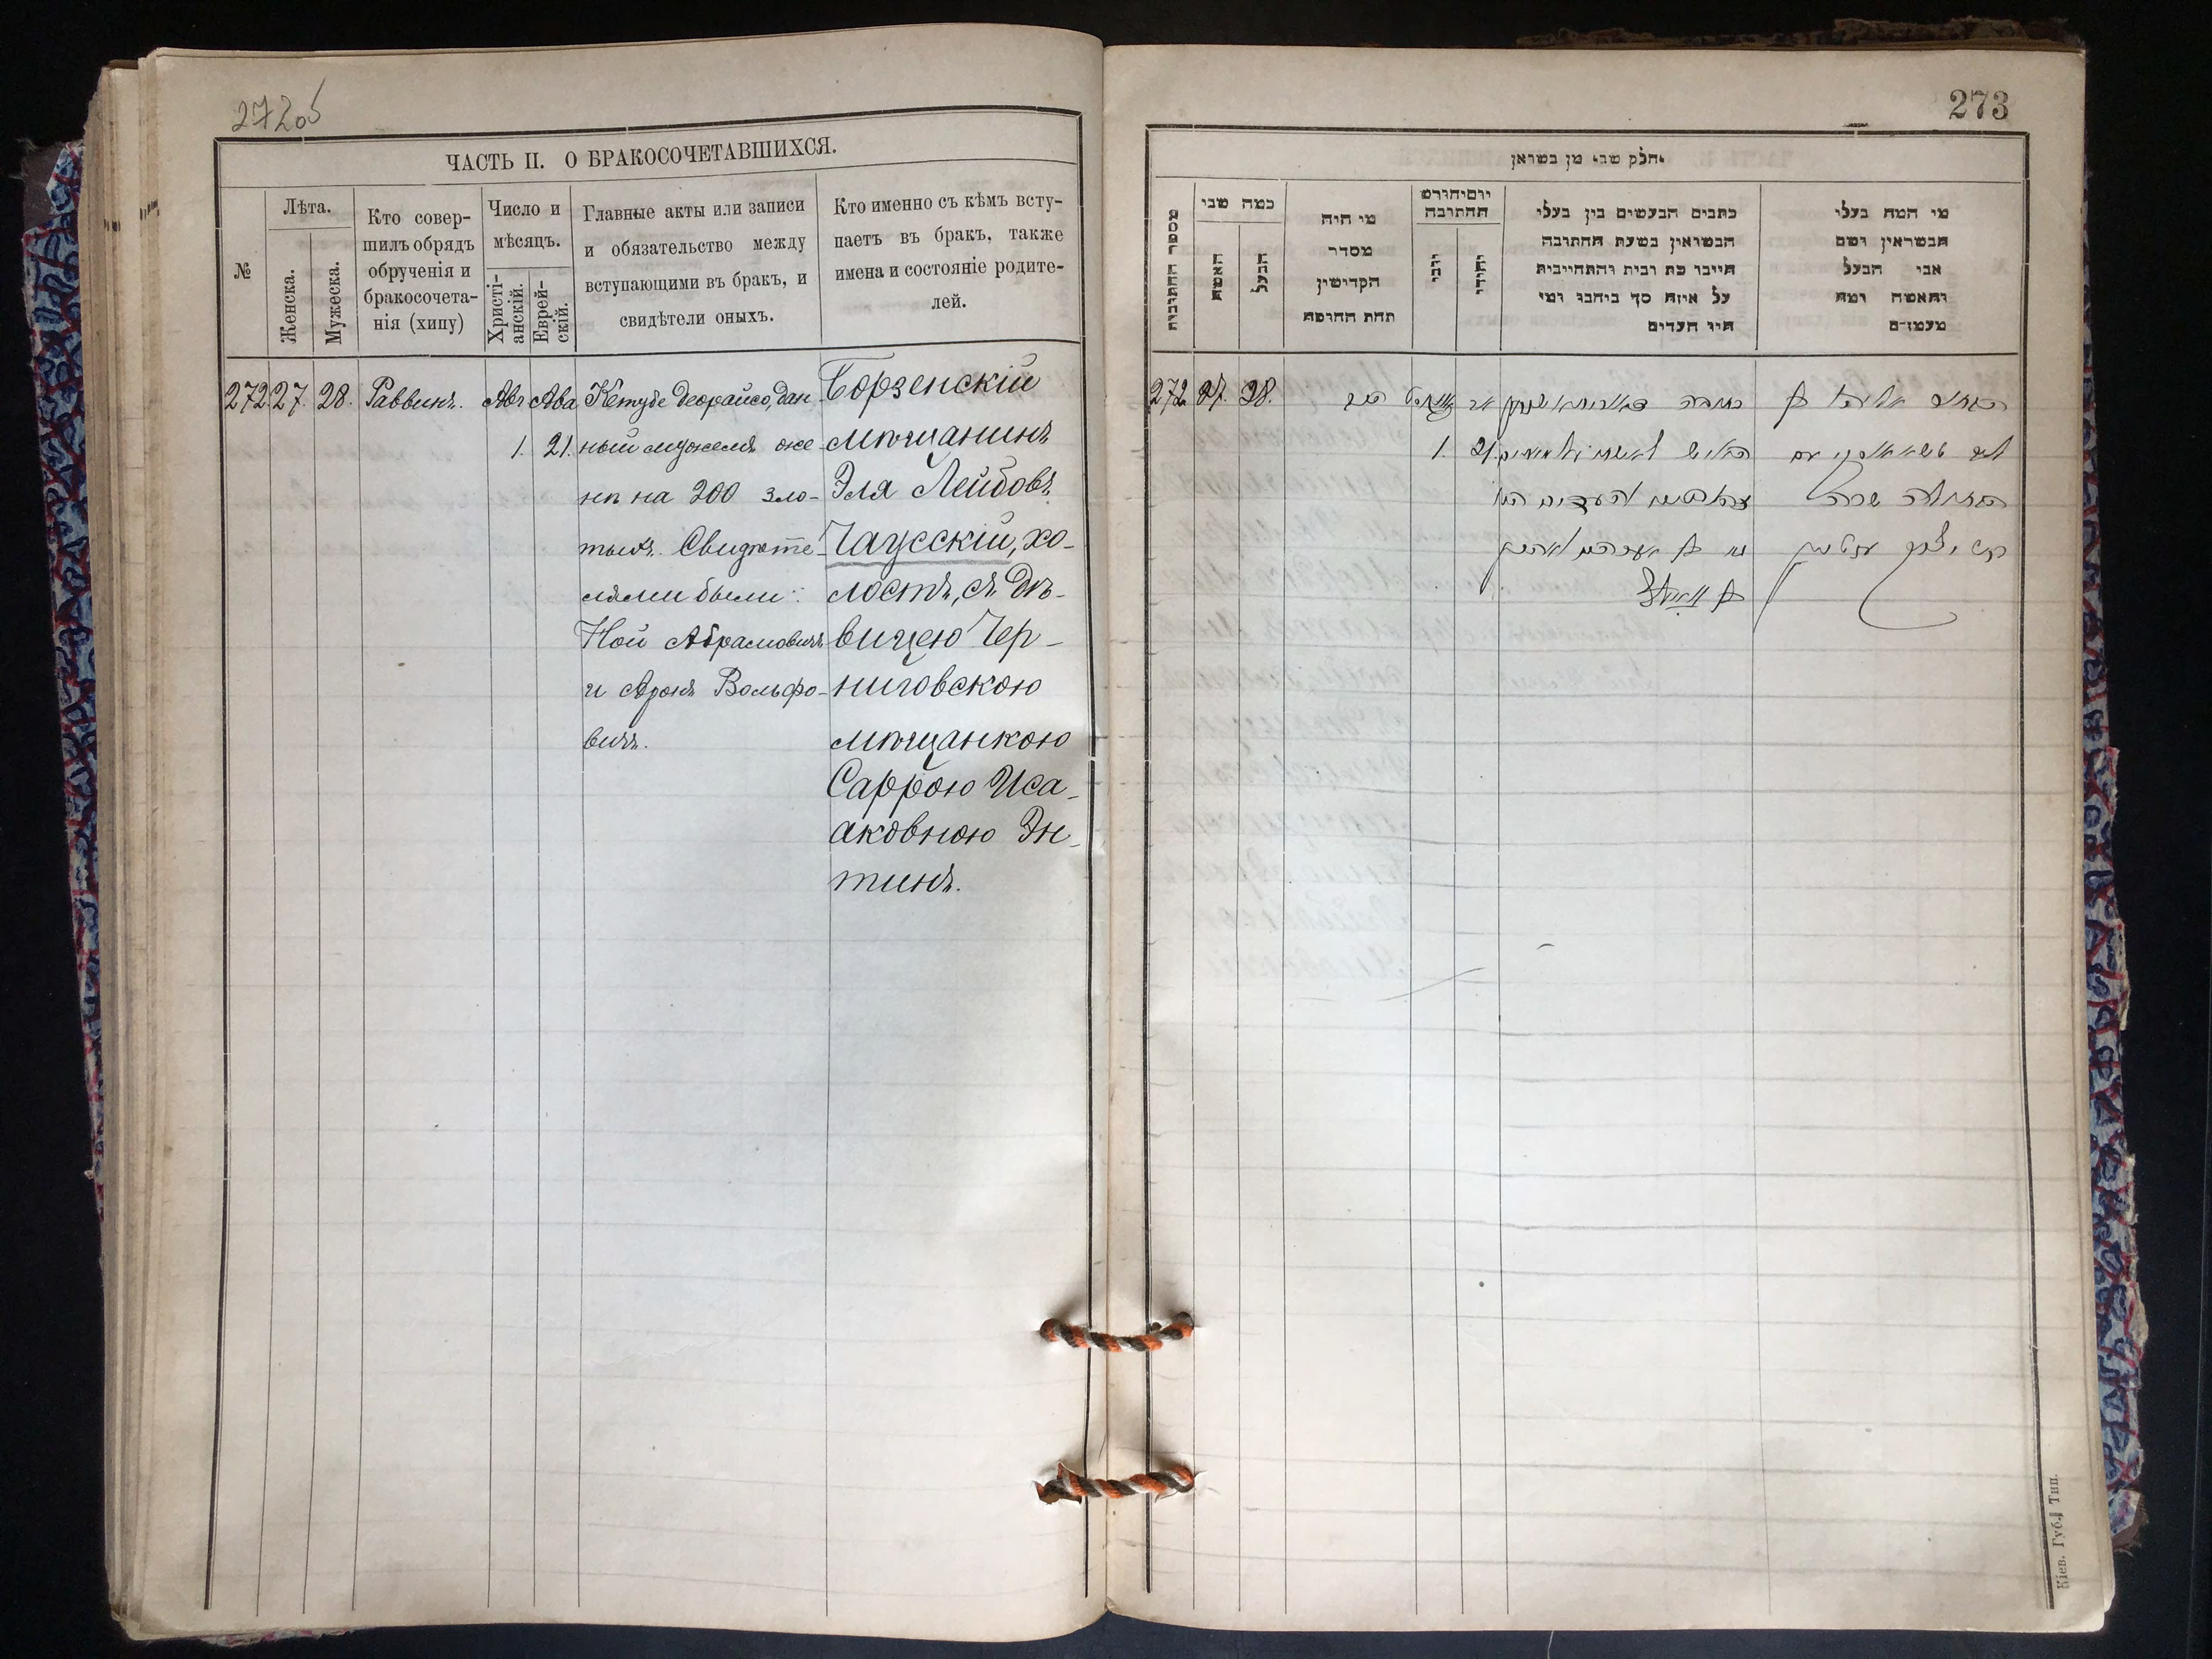 272об
ЧАСТЬ II. О БРАКОСОЧЕТАВШИХСЯ.
№
Лѣта.
Женска.
Мужеска.
Кто совер-
шилъ обрядъ
обрученія и
бракосочета-
нія (хипу)
Число и
мѣсяцъ.
Христі-
анскій.
Еврей-
скій.
Главные акты или записи
и обязательство между
вступающими въ бракъ, и
свидѣтели оныхъ.
Кто именно съ кѣмъ всту-
паетъ въ бракъ, также
имена и состояніе родите-
лей.
272. 27. 28. Раввинъ. Авг Ава
1. 21.
Кетубе деорайсо, дан
ный мужемъ же
нѣ на 200 зло-
тыхъ. Свидѣте-
лями были:
Ной Абрамовичъ
и Аронъ Вольфо-
вичъ.
Борзенскій
мѣщанинъ
Эля Лейбовъ
Чаусскій, хо-
лостъ, съ дѣ-
вицею Чер-
ниговскою
мѣщанкою
Саррою Иса-
аковною Эн-
тинъ.
273
חלק שני מן נשואין
מספר החתונות
כמה שני
האשה
הבעל
מי היה
מסדר
הקדושין
תחת החופה
יום וחודש
החתונה
יוני
יהודי
כתבים הנעשים בין בעלי
הנשואין בשעת החתונה
היינו כת ובית והתחייבות
על איזה סך ניתנו ומי
היו העדים
מי המה בעלי
הנשואין ושם
אבי הבעל
והאשה ומה
מעמדם
272. 27. 28. הרב
1. 21.
כתובה דאורייתא
האיש לאשתו
הבחור
עם
הבתולה שרה
Кіев. Губ. Тип.